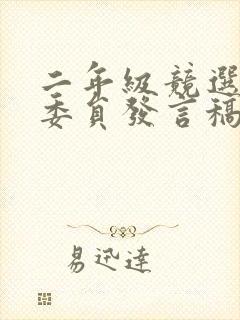 二年級競選
委員發言稿
易迅達